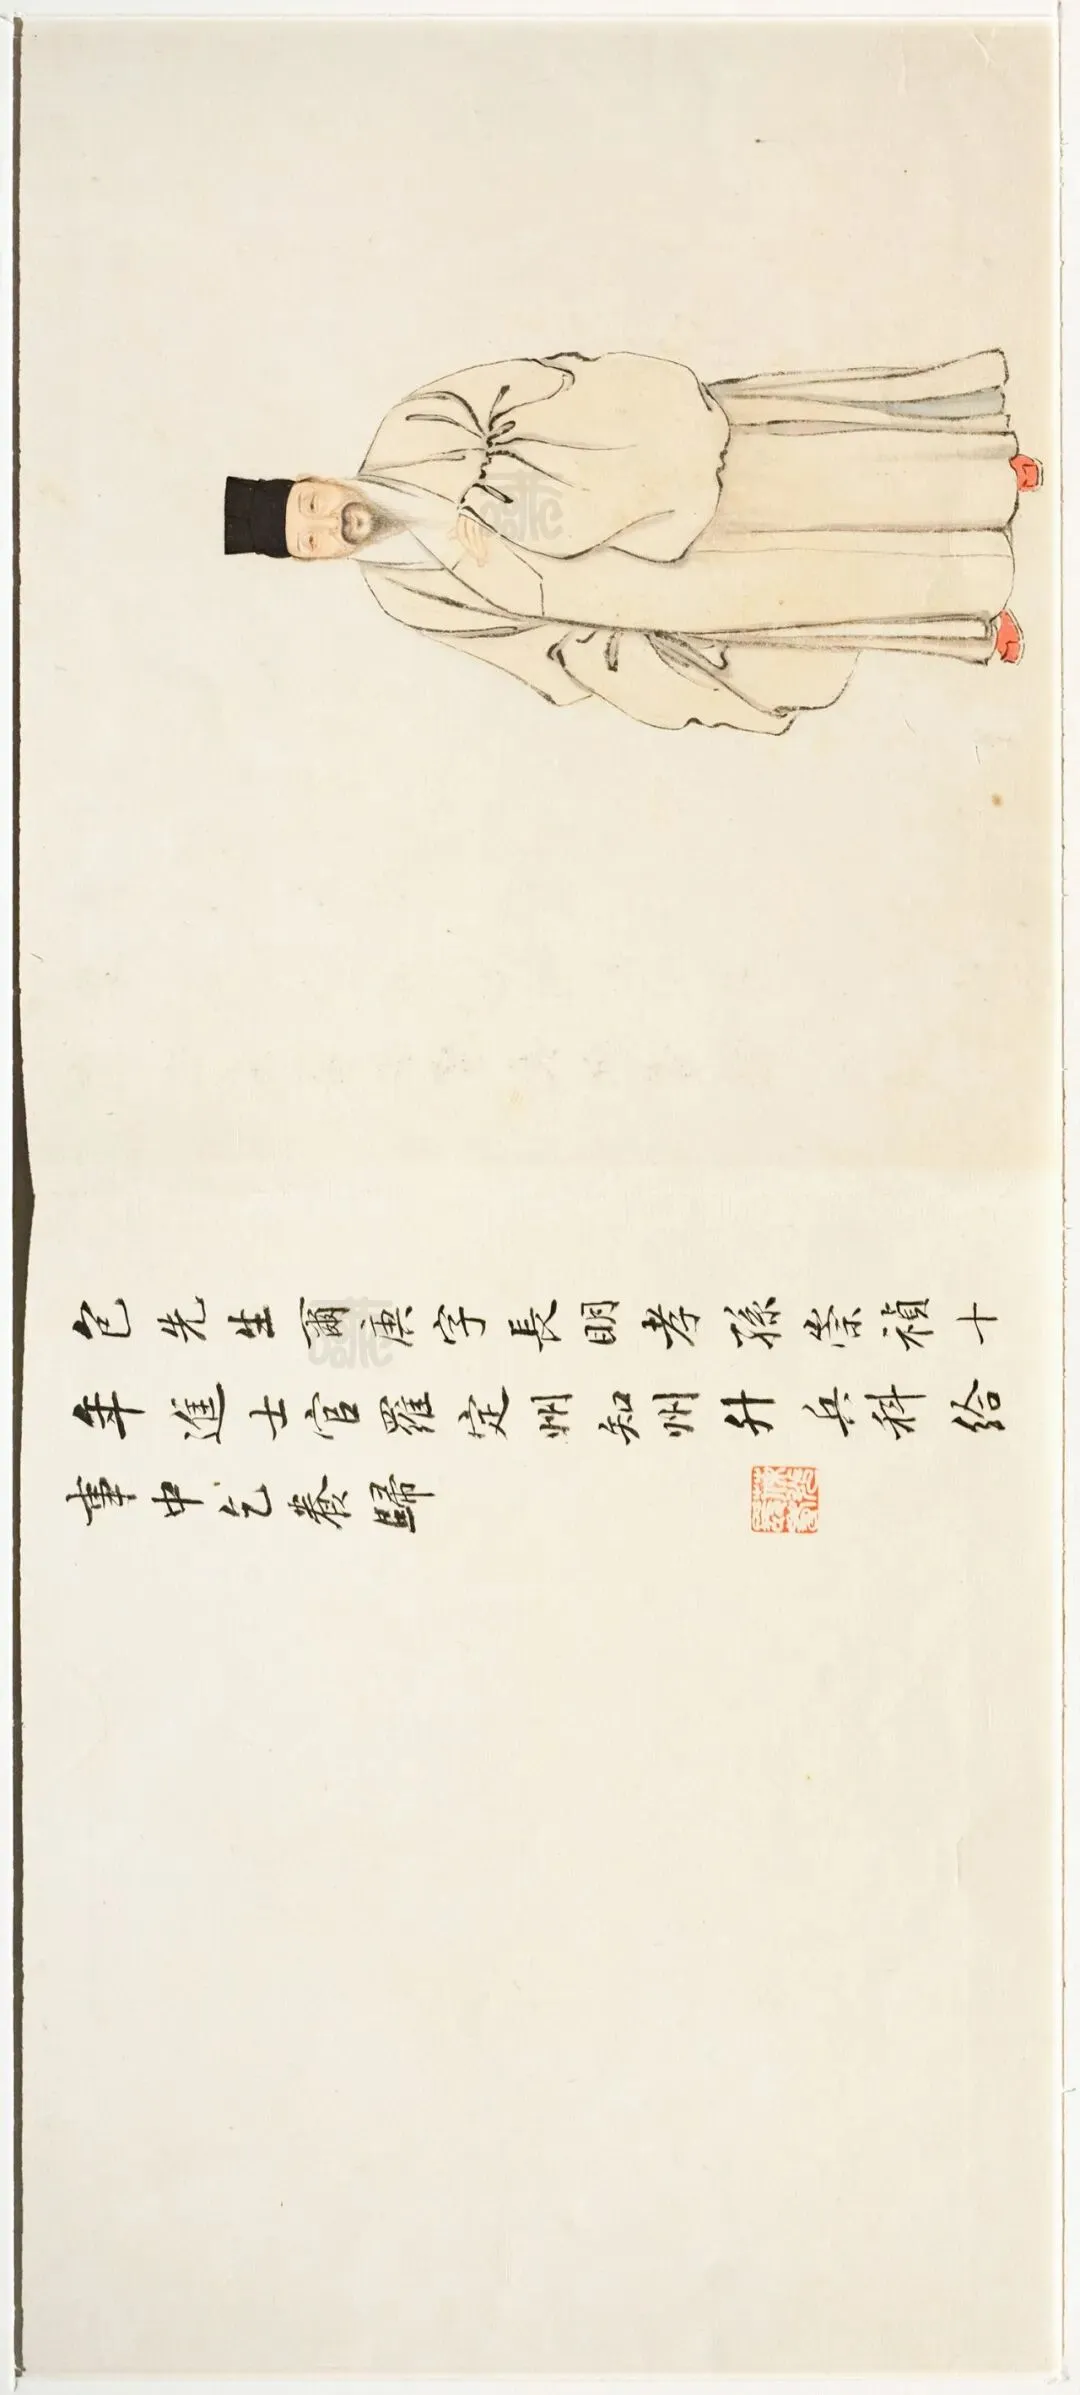 包先生爾庚字長明孝孫崇禎十
年進士官羅定州知州升兵科給
事中乞養歸